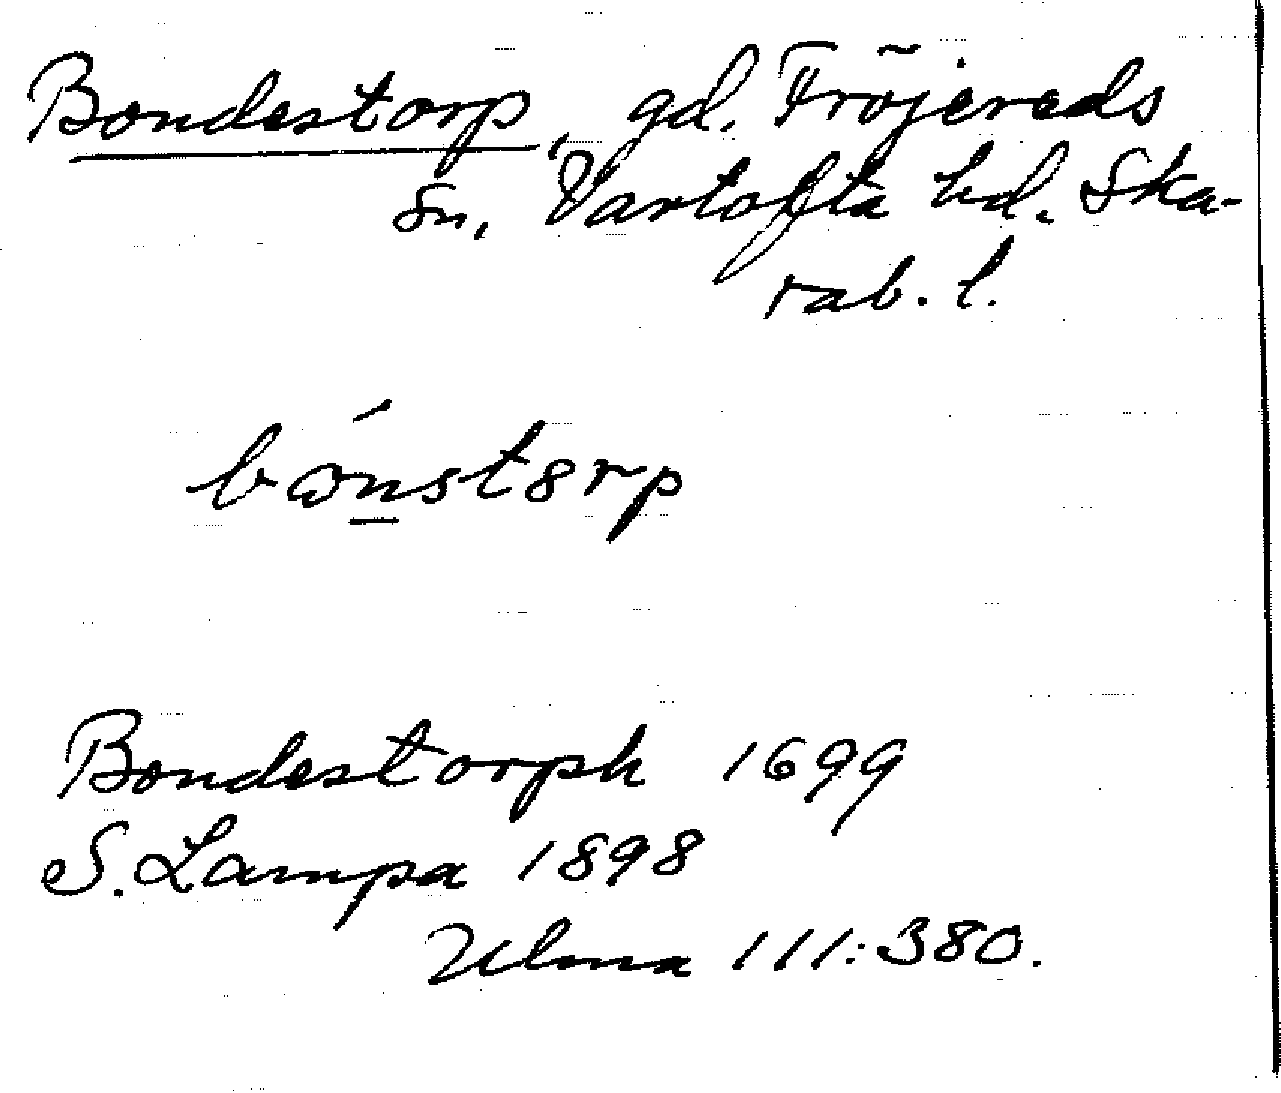 Bondestorp, gd. Fröjereds
sn, Vartofta hd. Ska-
rab. l.
bo̍nstorp
Bondestorph 1699
S. Lampa 1898
Ulma 111:380.